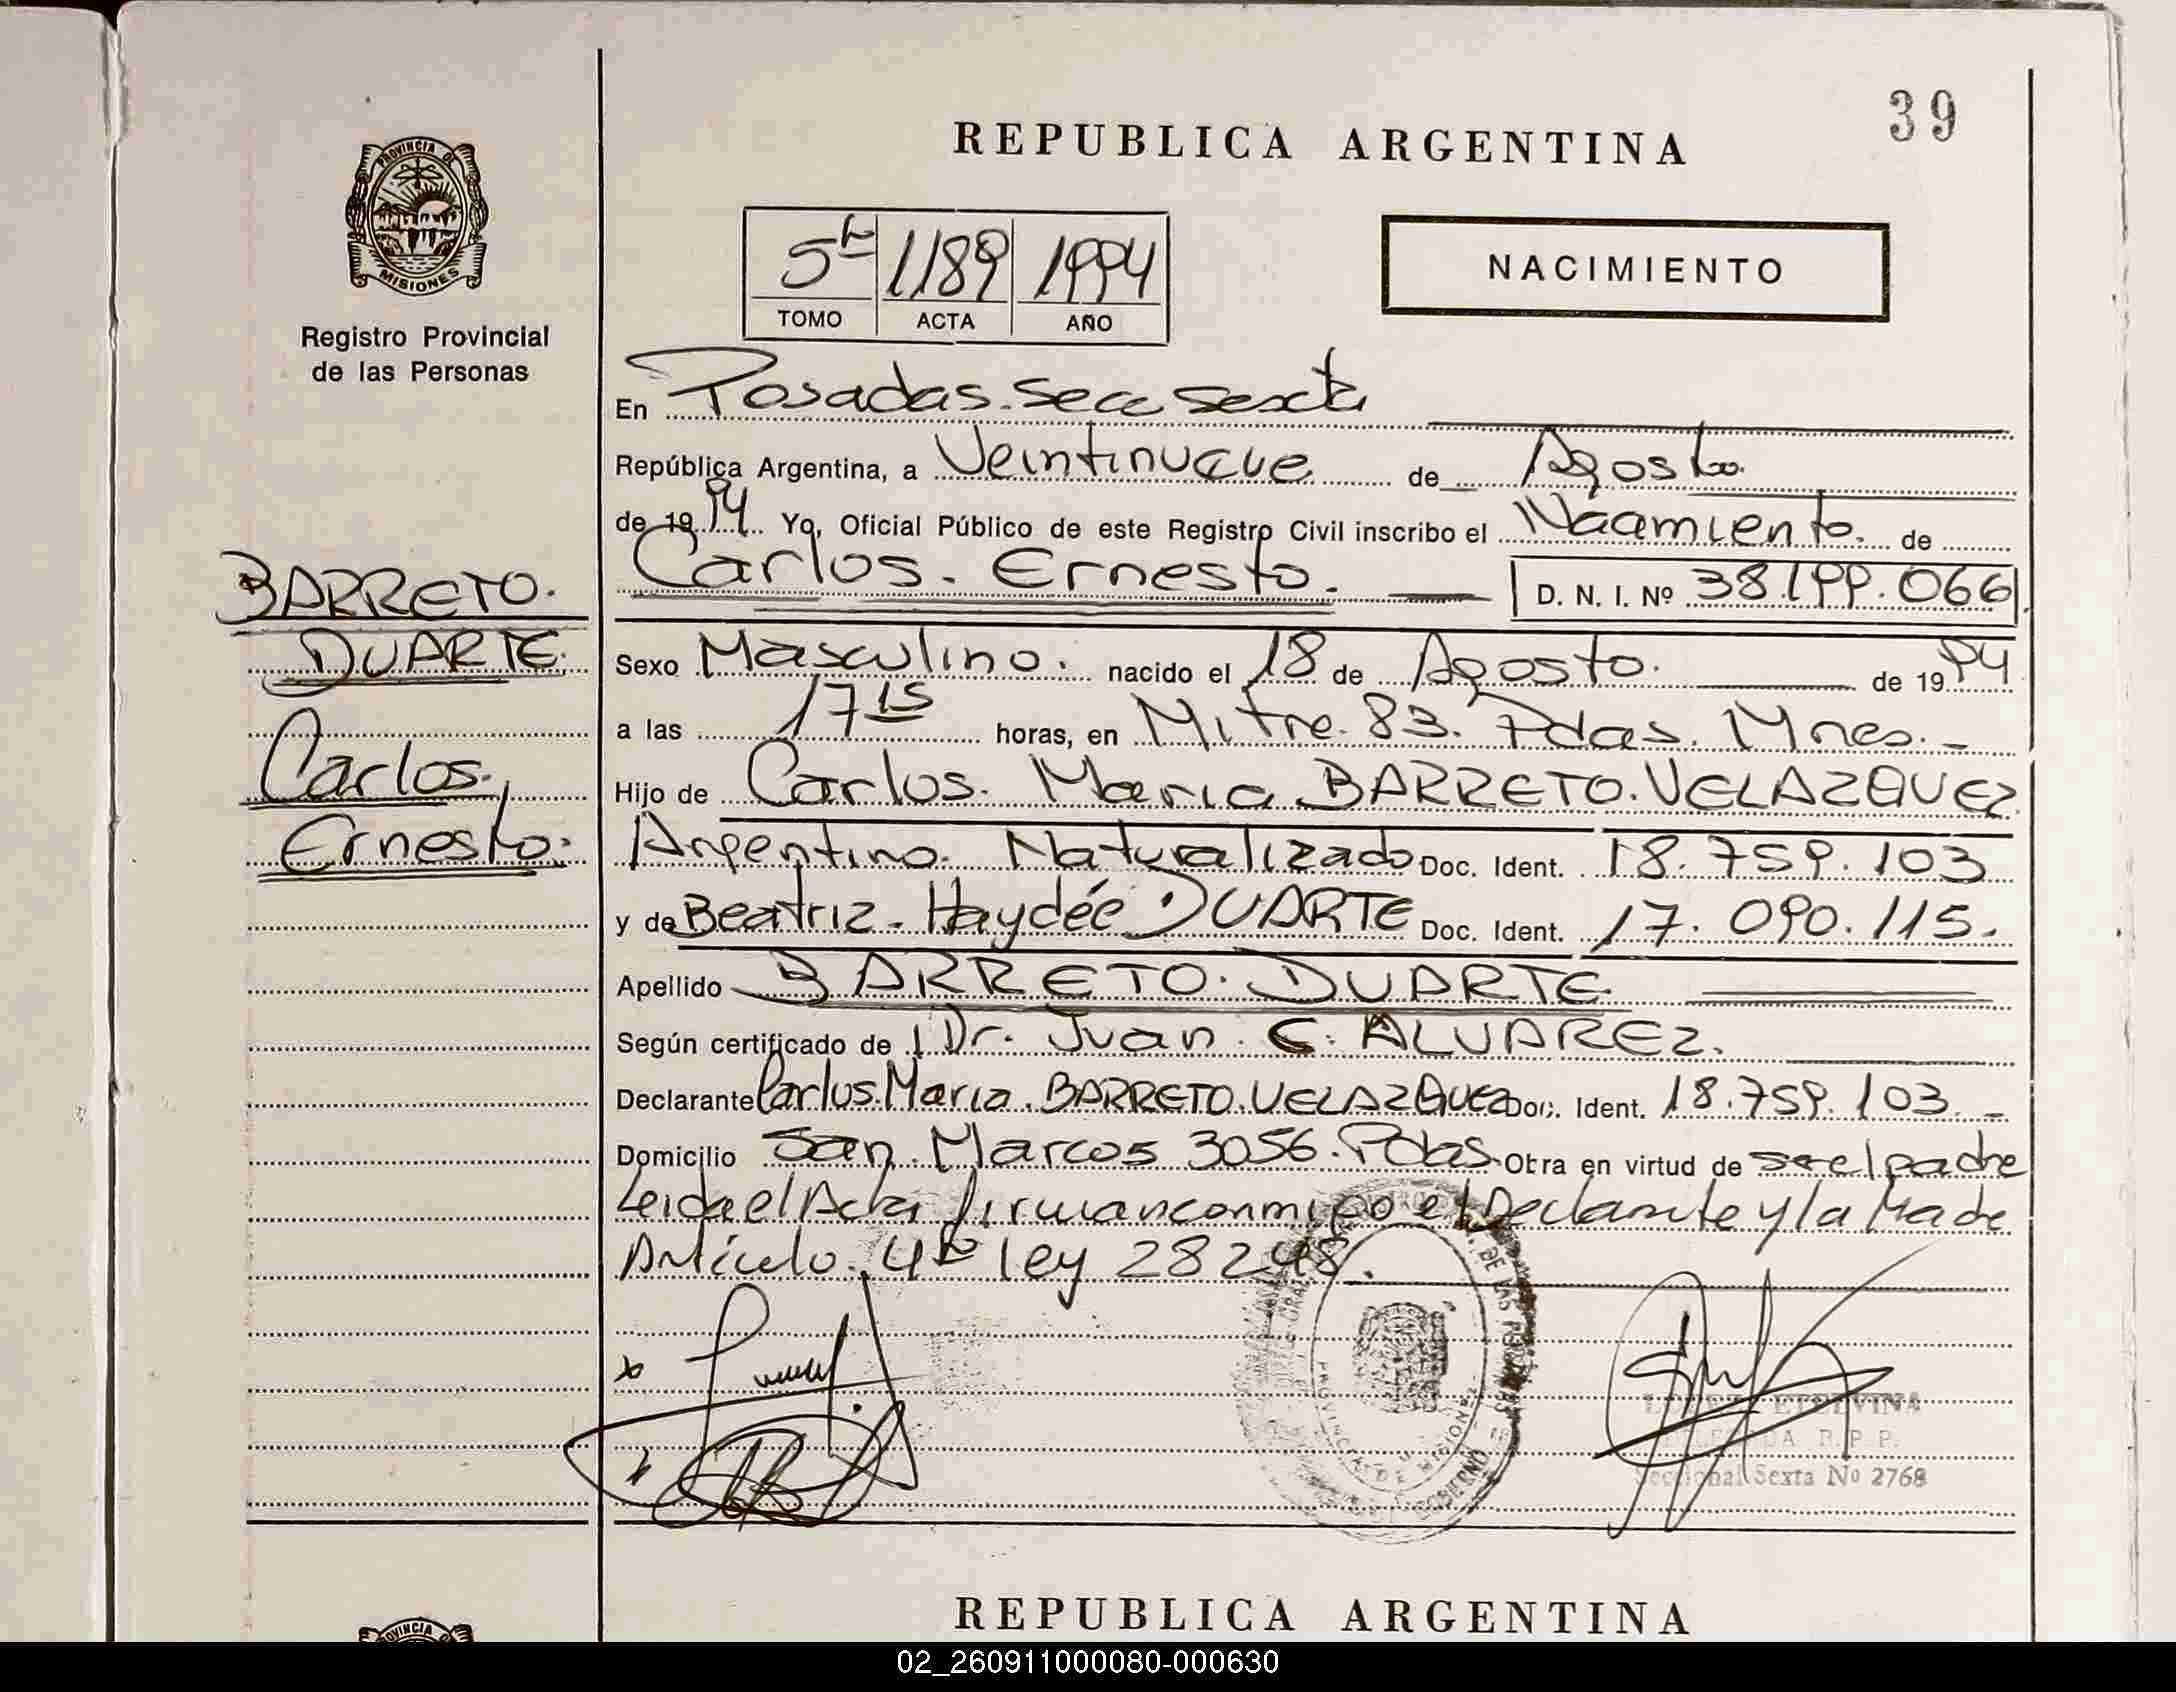 39
REPUBLICA ARGENTINA
PROVINCIA DE
MISIONES
Registro Provincial
de las Personas
5to 1189 1994
TOMO ACTA AÑO
NACIMIENTO
En Posadas. Secc Sexta
República Argentina, a Veintinueve de Agosto.
de 1994. Yo, Oficial Público de este Registro Civil inscribo el Nacimiento. de
Carlos. Ernesto. D. N. I. Nº 38.199.066
BARRETO.
DUARTE.
Carlos.
Ernesto.
Sexo Masculino. nacido el 18 de Agosto. de 1994
a las 17 15 horas, en Mitre. 83. Pdas. Mnes. -
Hijo de Carlos. Maria BARRETO. VELAZQUEZ
Argentino. Naturalizado Doc. Ident. 18.759.103
y de Beatriz. Haydée DUARTE Doc. Ident. 17.090.115.
Apellido BARRETO. DUARTE.
Según certificado de Dr. Juan. C. ALVAREZ.
Declarante Carlos. Maria. BARRETO. VELAZQUEZ Doc. Ident. 18.759.103. -
Domicilio San. Marcos 3056. Pdas. Obra en virtud de ser el padre
Leida el Acta firman conmigo el Declarante y la Madre
Artículo. 4to ley 28248.
DE LAS PERSONAS
PROVINCIA DE MISIONES
GOBIERNO
ETELVINA
R. P. P.
Seccional Sexta No 2768
REPUBLICA ARGENTINA
PROVINCIA
02_260911000080-000630